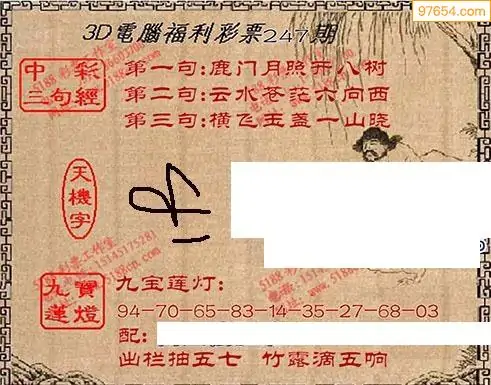 97654.com
3D電腦福利彩票247期
中彩
三句經
第一句:鹿门月照开八树
第二句:云水苍茫六向西
第三句:横飞玉盏一山晓
天機字
九寶
蓮燈
九宝莲灯:
94-70-65-83-14-35-27-68-03
配:
出栏抽五七 竹露滴五响